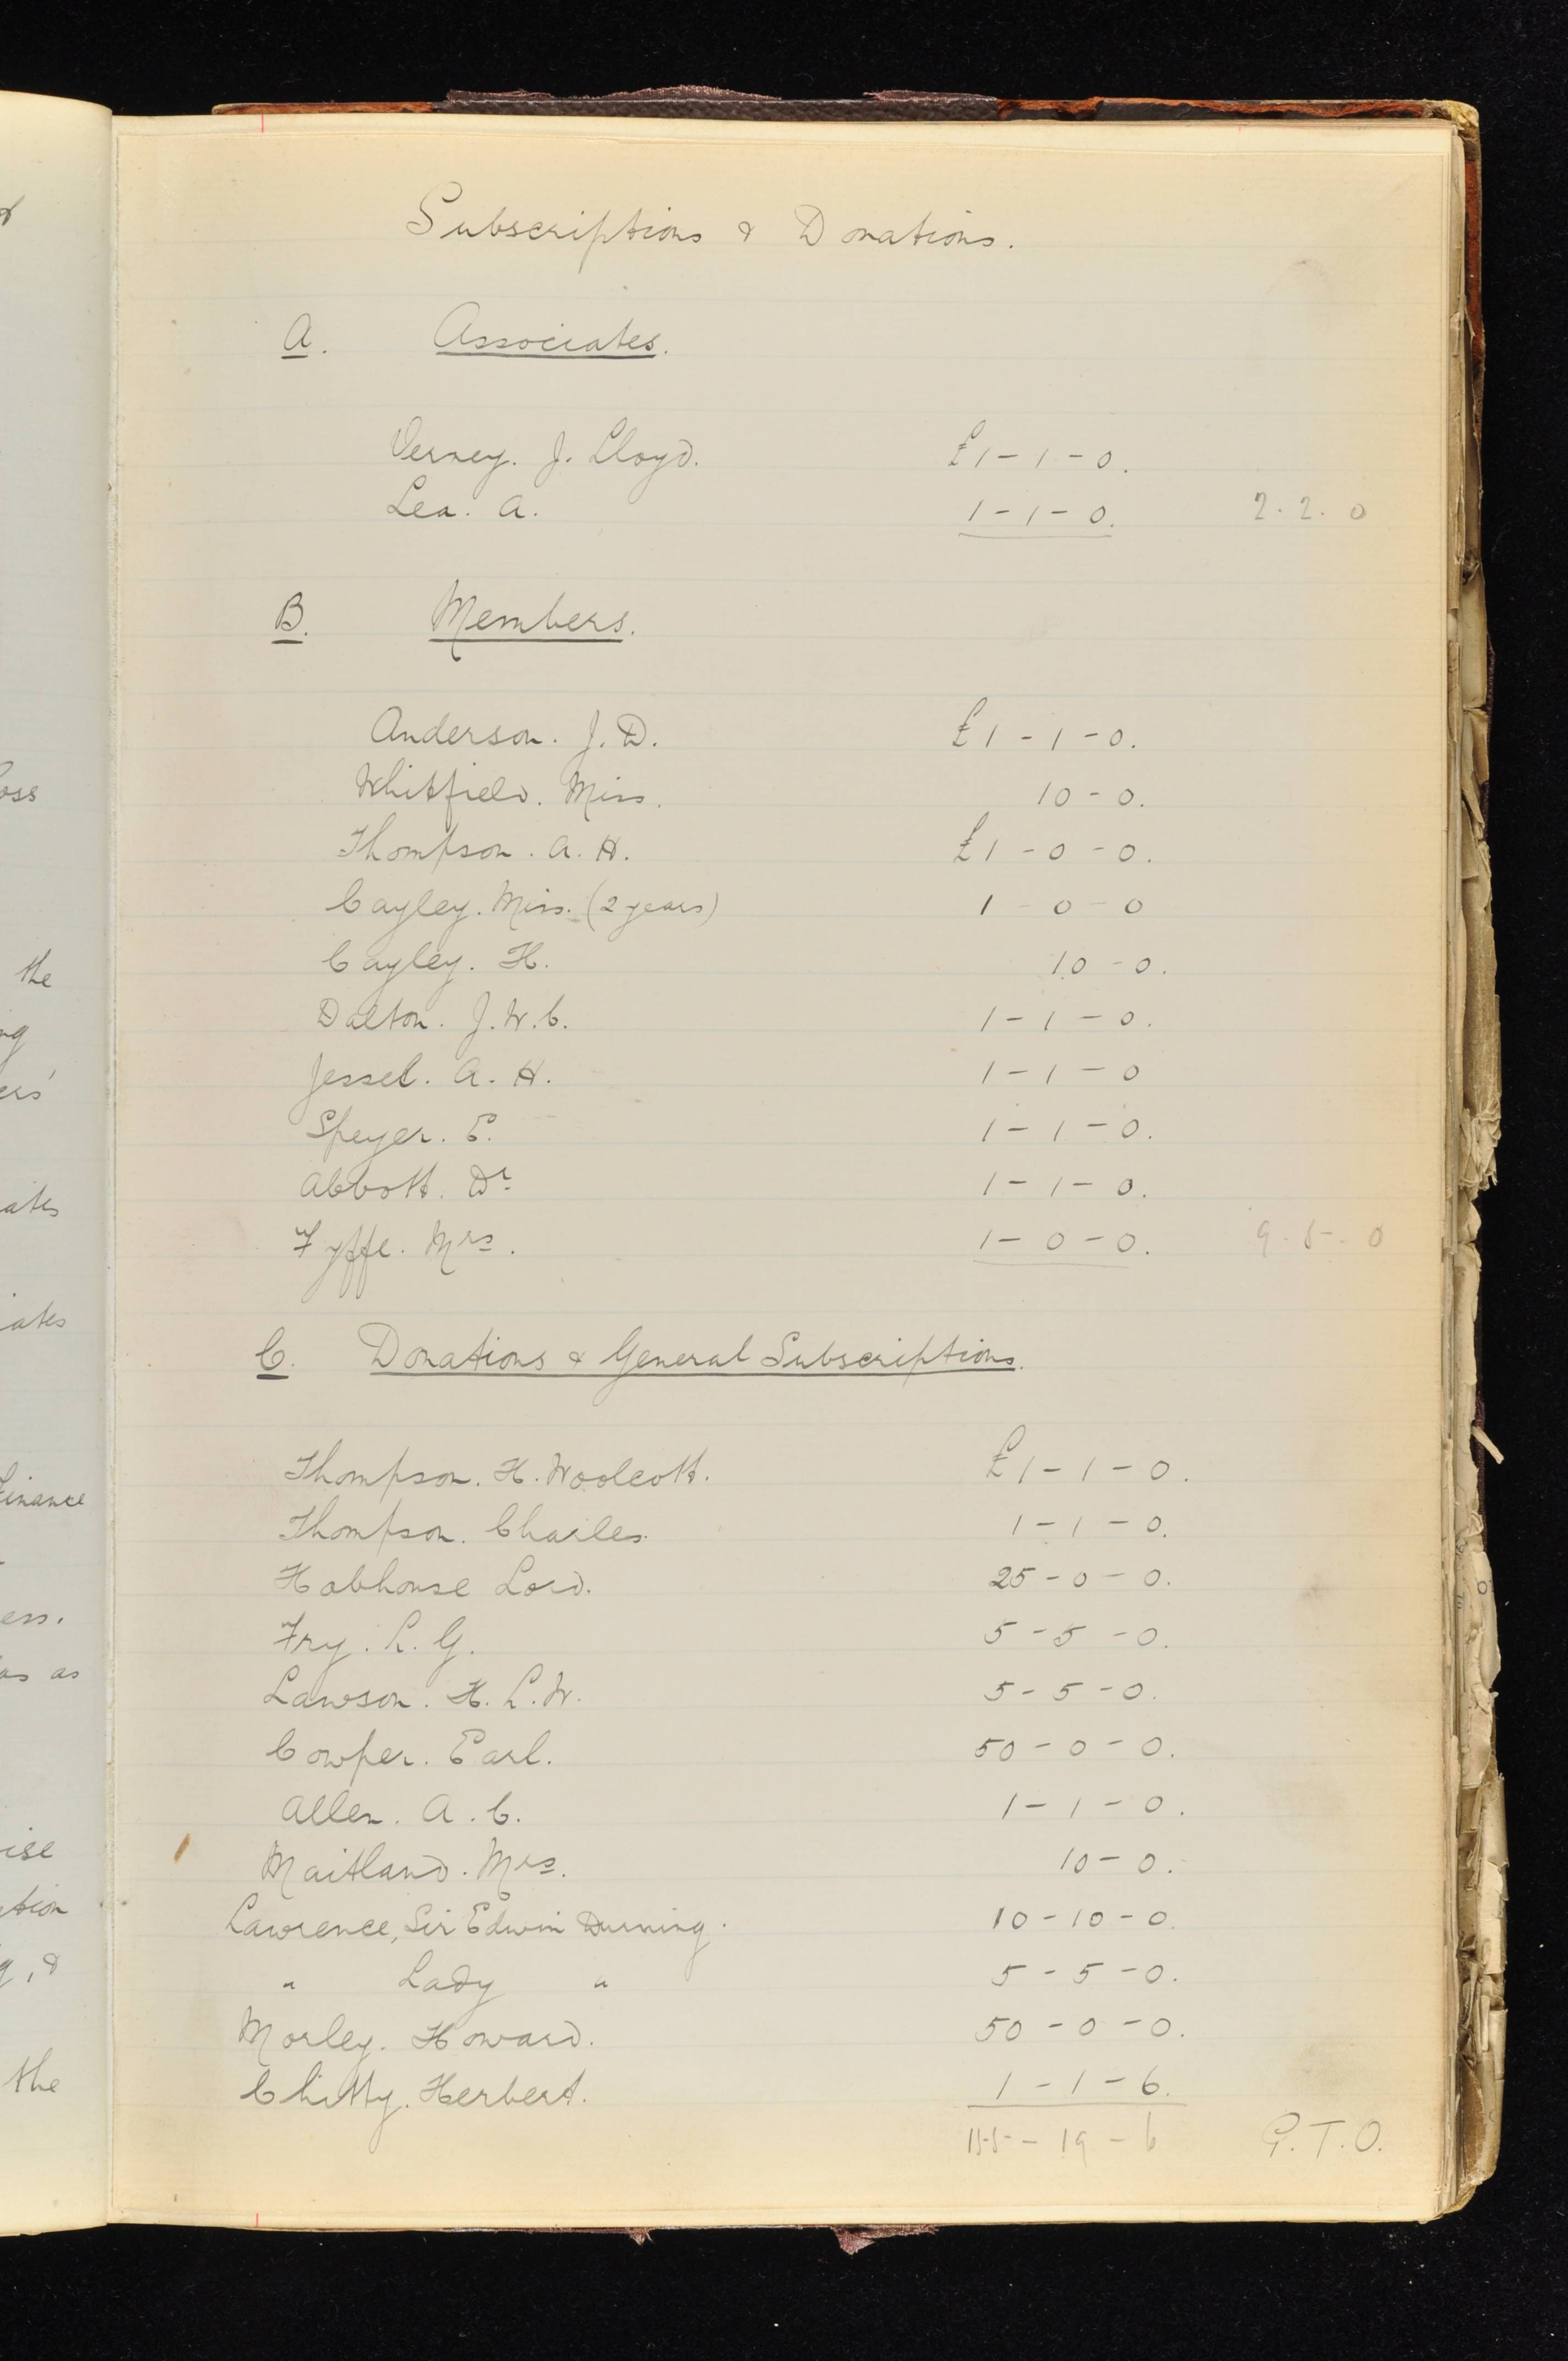 Subscriptions & Donations.
A. Associates.
Verney. J. Lloyd. £1-1-0.
Lea. A. 1-1-0. 2.2.0
B. Members.
Anderson. J. D. £1-1-0.
Whitfield. Miss. 10-0.
Thompson. A. H. £1-0-0.
Cayley. Miss. (2 years) 1-0-0
Cayley. H. 10-0.
Dalton. J. W. C. 1-1-0.
Jessel. A. H. 1-1-0
Speyer. E. 1-1-0.
Abbott. Dr 1-1-0.
Fyffe. Mrs. 1-0-0. 9.5.0
C. Donations & General Subscriptions.
Thompson. H. Woolcott. £1-1-0.
Thompson. Charles. 1-1-0.
Hobhouse Lord. 25-0-0.
Fry. L. G. 5-5-0.
Lawson. H. L. W. 5-5-0.
Cowper. Earl. 50-0-0.
Allen. A. C. 1-1-0.
Maitland. Mrs. 10-0.
Lawrence, Sir Edwin Durning. 10-10-0.
" Lady " 5-5-0.
Morley. Howard. 50-0-0.
Chitty. Herbert. 1-1-6.
155-19-6 P.T.O.
oss
the
ng
ers'
ates
iates
Finance
ess.
as as
ise
ction
g, &
the